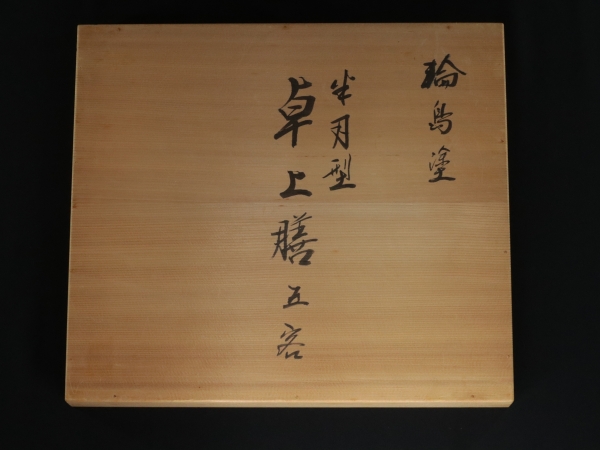 輪島塗
半月型
卓上膳五客